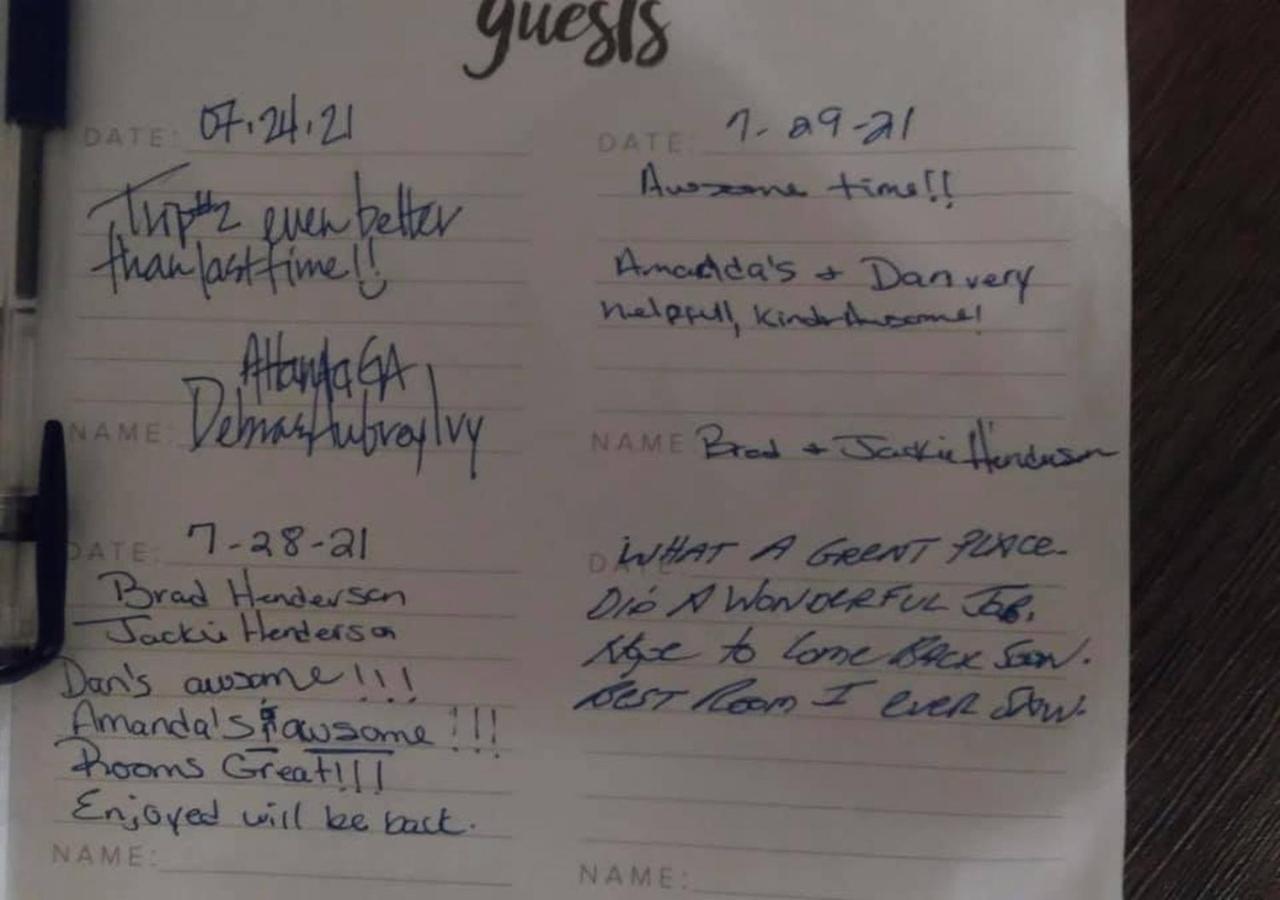 guests
DATE: 07.24.21
Trip #2 even better
than last time!!
Atlanta GA
NAME: Debra & Aubrey Ivy
DATE: 7-29-21
Awsome time!!
Amanda's + Dan very
helpfull, kind & Awsome!
NAME Brad + Jackie Henderson
DATE: 7-28-21
Brad Henderson
Jackie Henderson
Dan's awsome!!!
Amanda's awsome!!!
Rooms Great!!!
Enjoyed will be back.
NAME:
WHAT A GREAT PLACE.
DiD A WONDERFUL JOB.
Hope to Come BACK Soon.
BEST Room I ever Saw.
NAME: